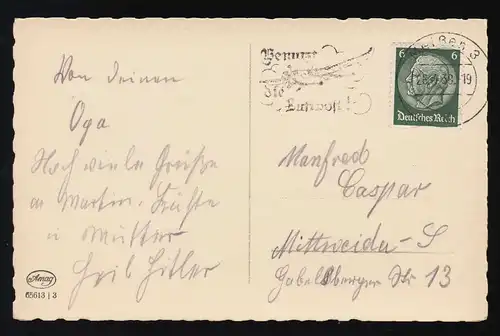 Von deinen
Oga
Noch viele Grüße
an Martin, Küchte
u Mutter
Heil Hitler
Amag
65613 | 3
Benutzt
die
Luftpost!
6 6
Deutsches Reich
3
19
Manfred
Caspar
Mittweida-S
Gabelsberger Str 13